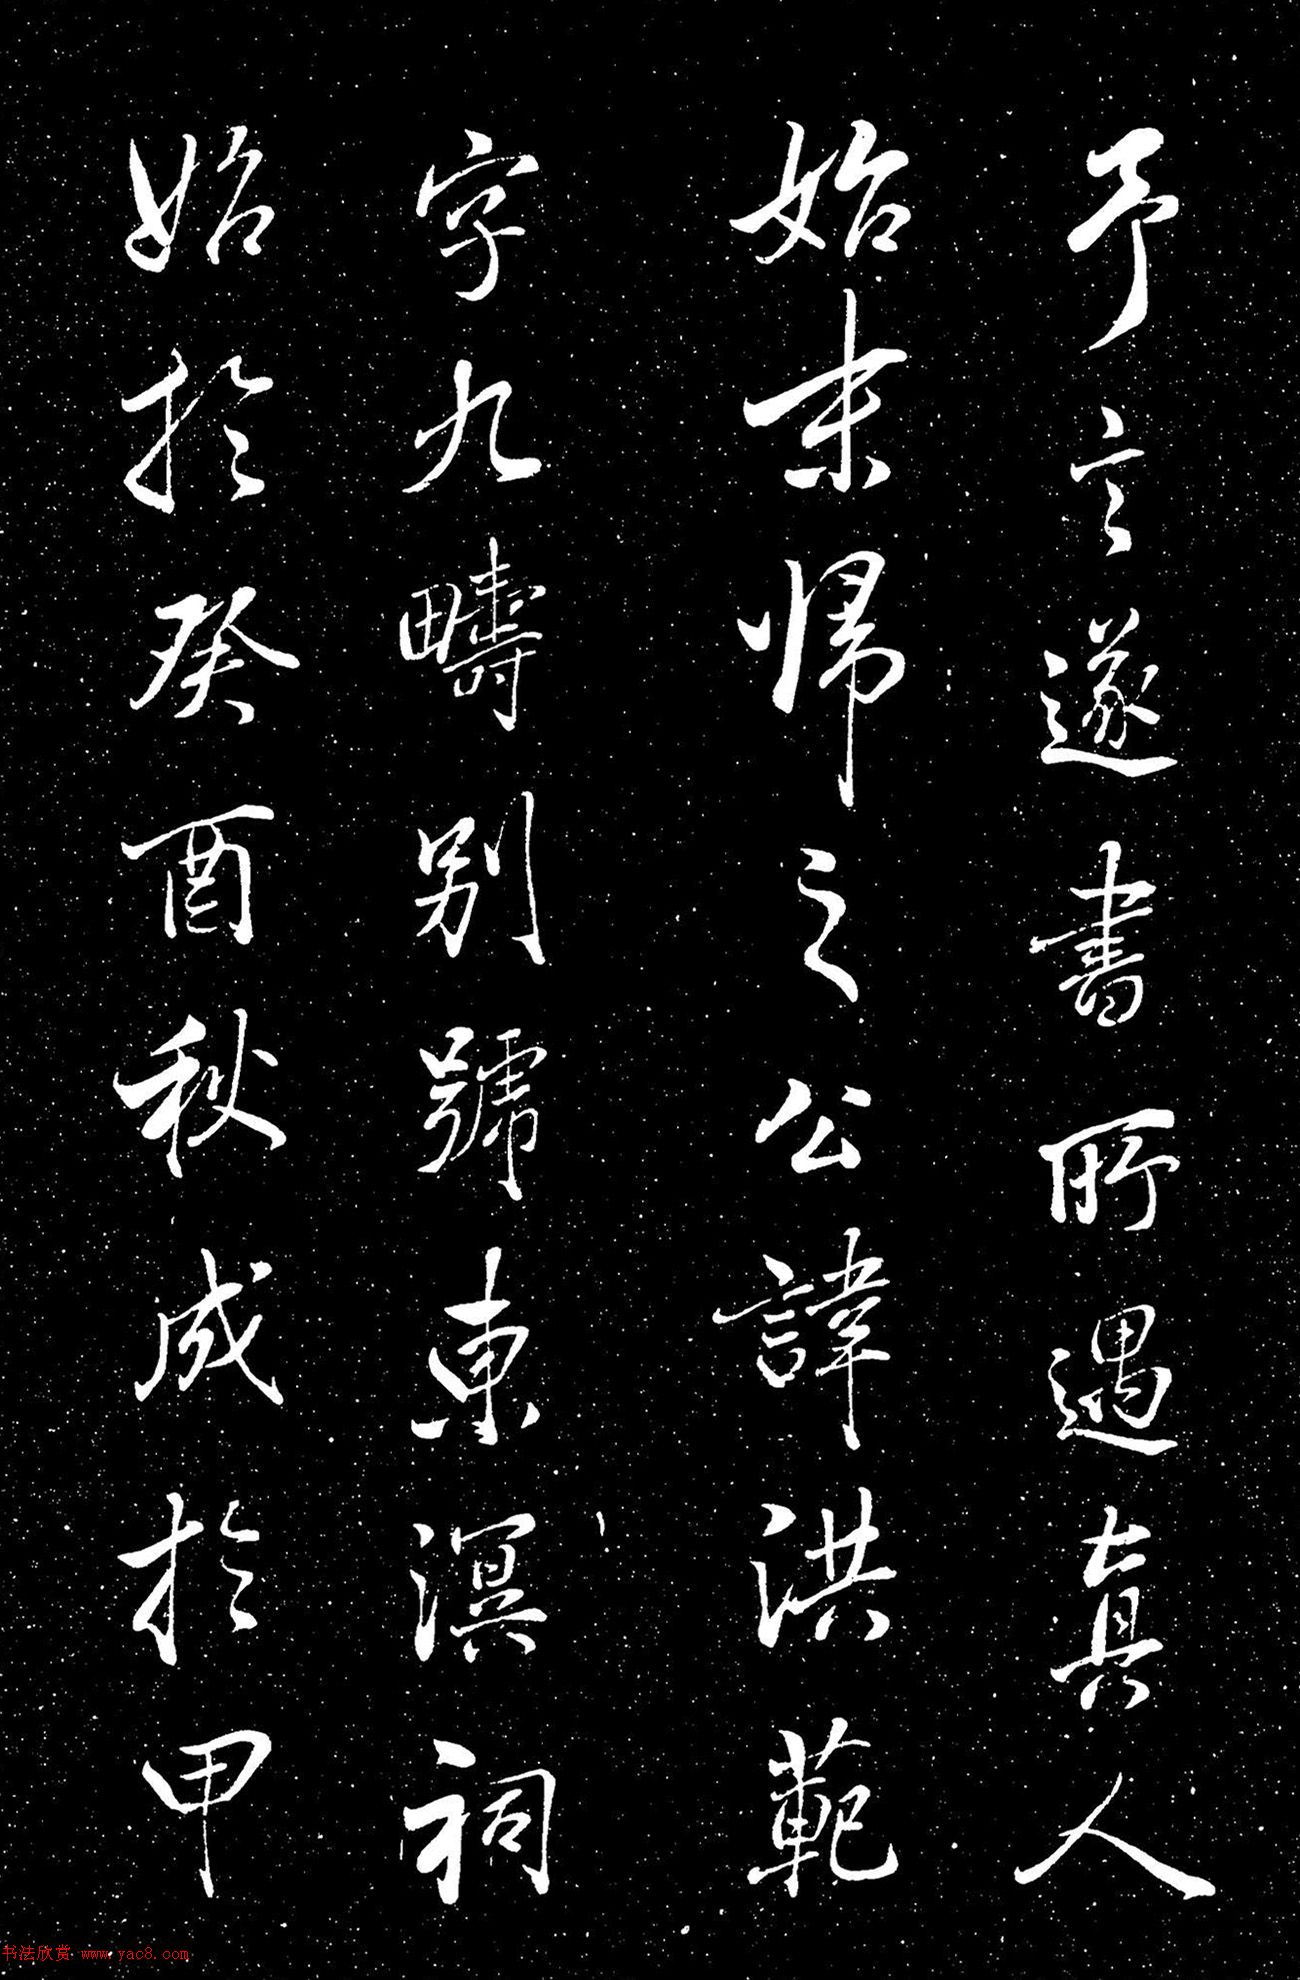 予言遂書所遇真人
始末歸之公諱洪範
字九疇别號東溟祠
始於癸酉秋成於甲
书法欣赏 www.yac8.com